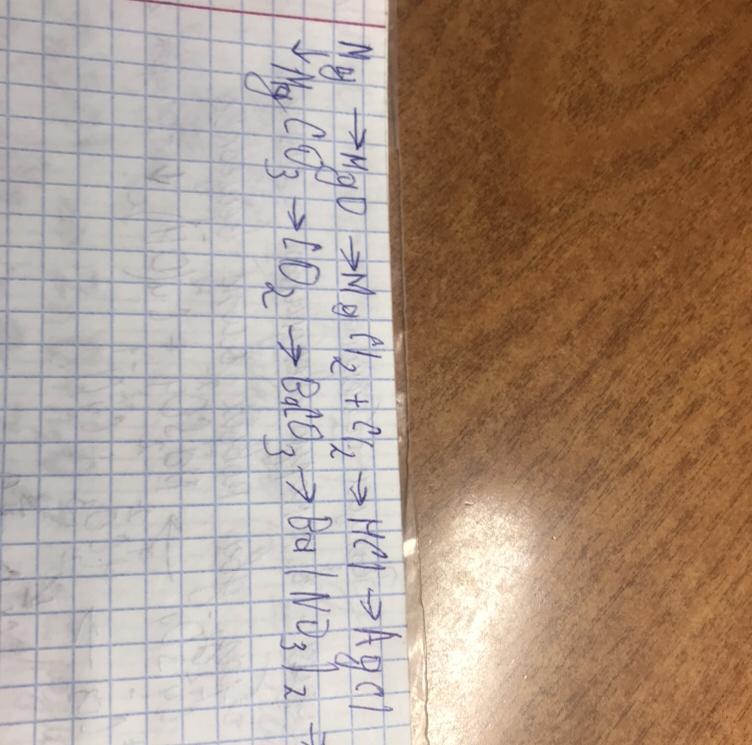 Mg → MgO → MgCl2 + Cl2 → HCl → AgCl
↓ MgCO3 → CO2 → BaCO3 → Ba(NO3)2 →